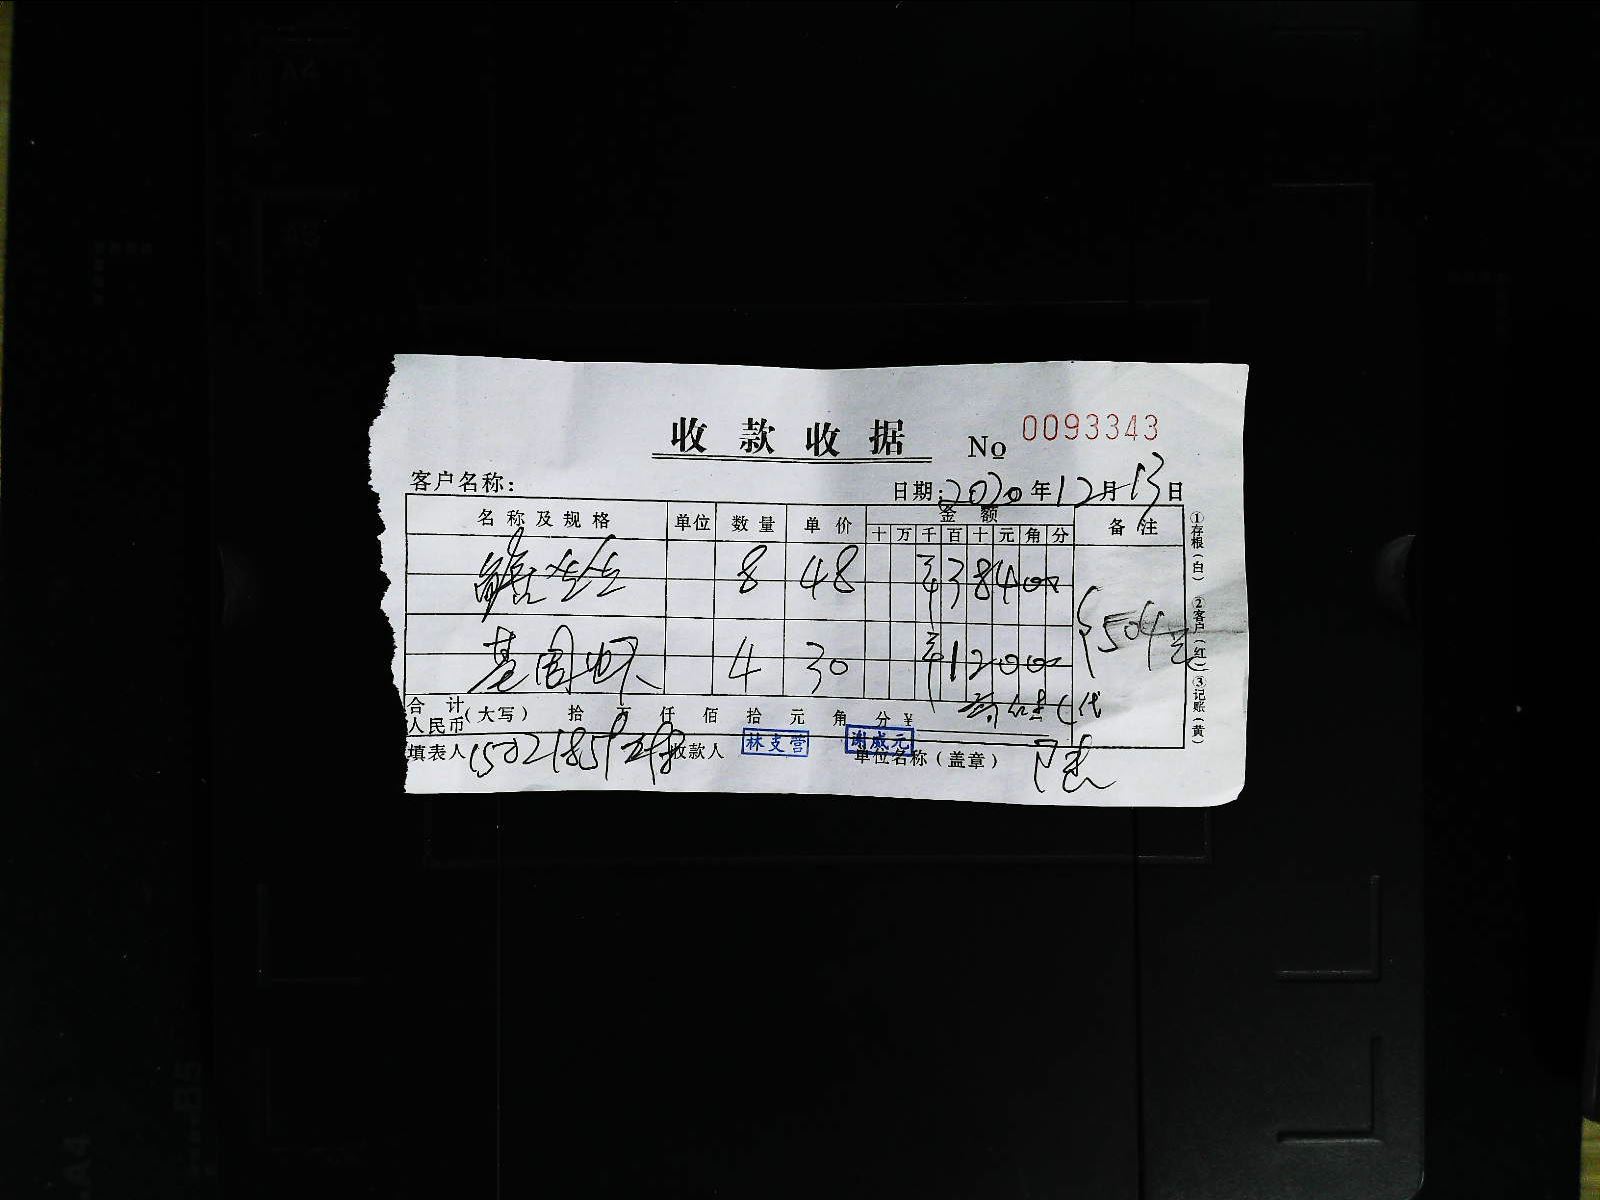 收款收据 No 0093343
客户名称： 日期：2020年12月13日
名称及规格 单位 数量 单价 金额 备注
十 万 千 百 十 元 角 分
8 48 ¥ 3 8 4 0 0
504元
基围虾 4 30 ¥ 1 2 0 0 0
合计人民币（大写） 拾 万 仟 佰 拾 元 角 分 ¥
填表人 收款人 林支营 谢威元 单位名称（盖章）
①存根（白） ②客户（红） ③记账（黄）